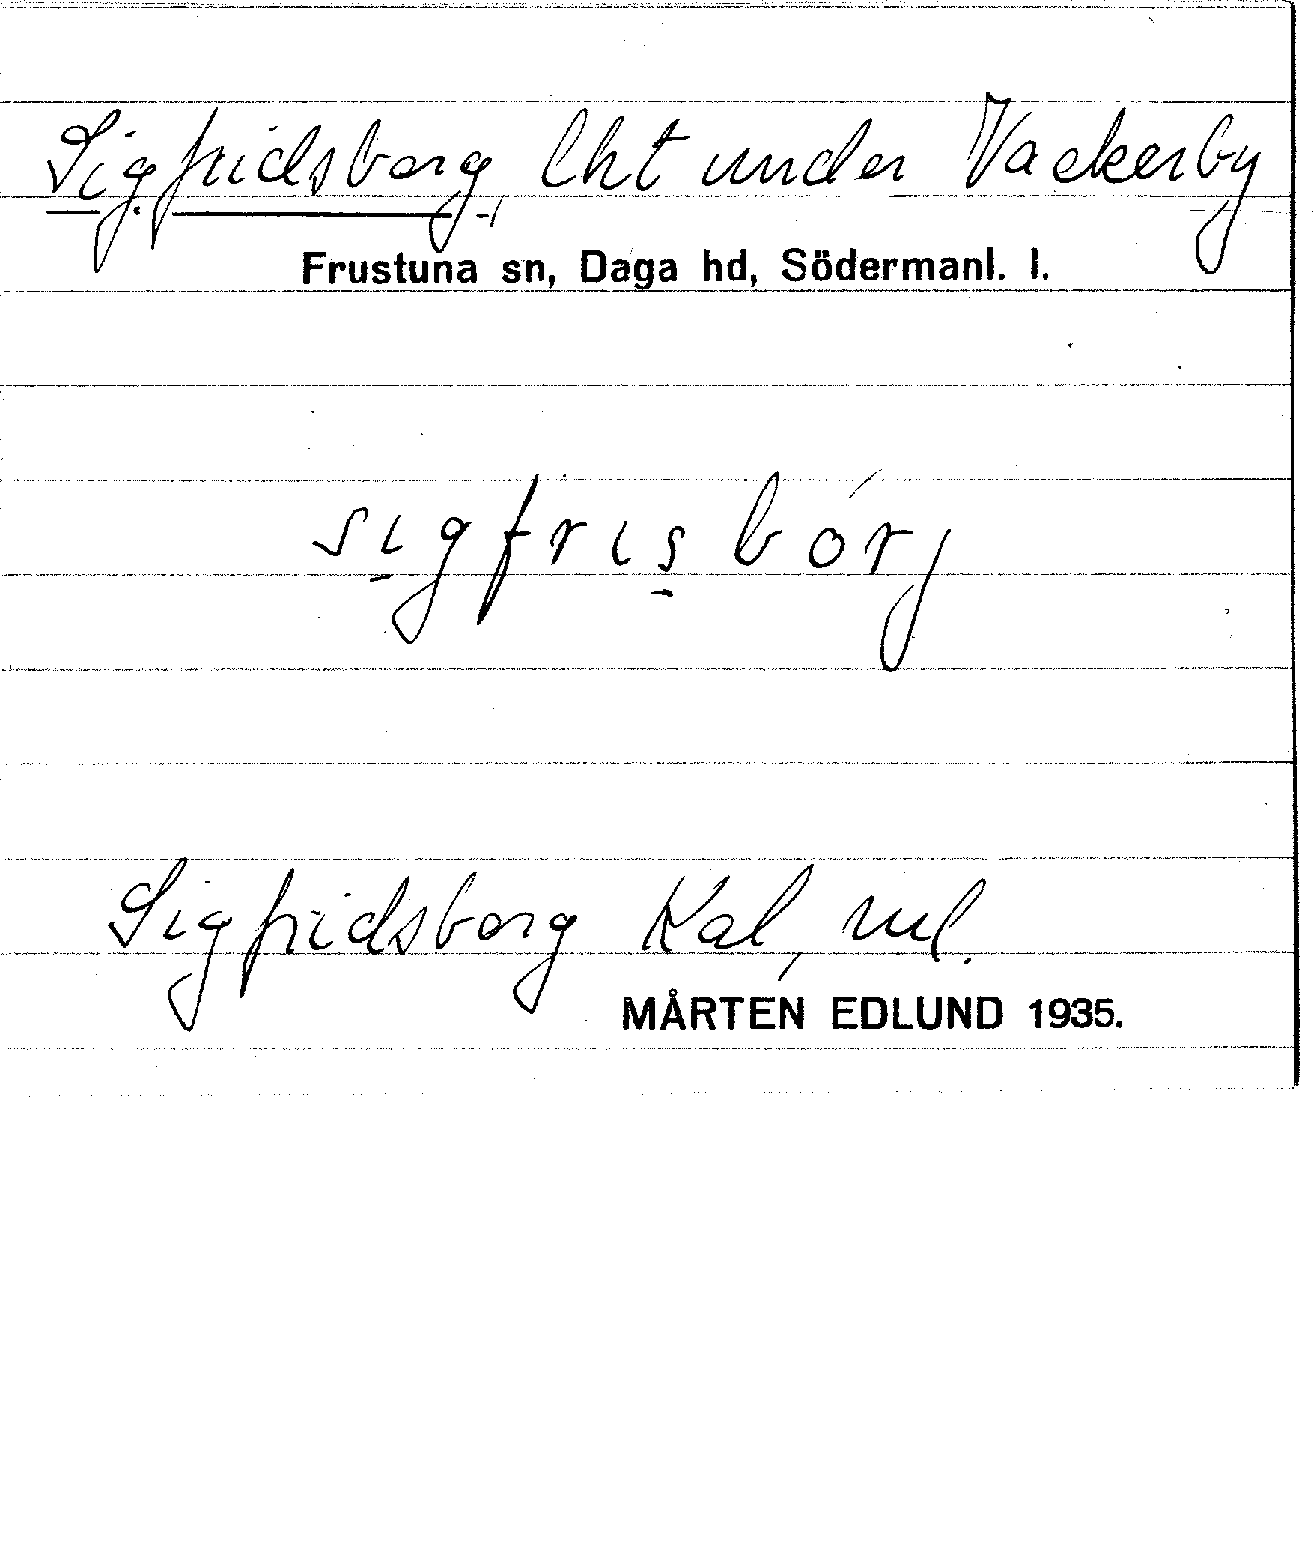 Sigfridsborg, lht under Vackerby
Frustuna sn, Daga hd, Södermanl. l.
sigfrisbórj
Sigfridsborg Kal, ml.
MÅRTEN EDLUND 1935.